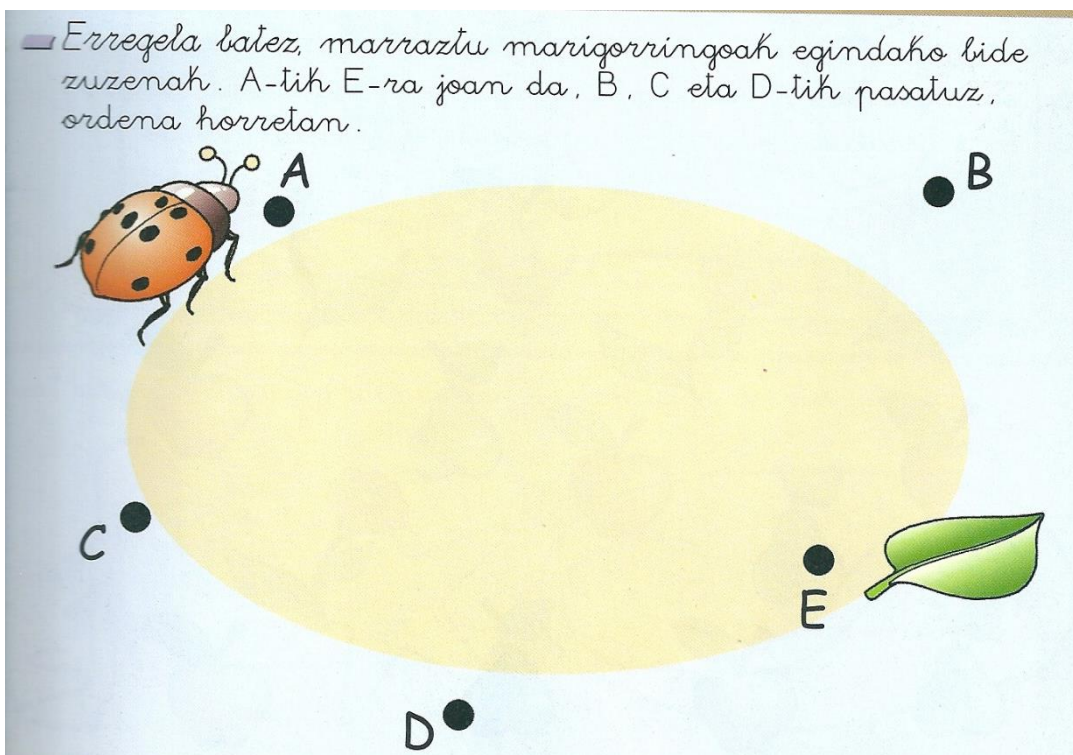 Erregela batez, marraztu marigorringoak egindako bide
zuzenak. A-tik E-ra joan da, B, C eta D-tik pasatuz,
ordena horretan.
A
B
C
E
D